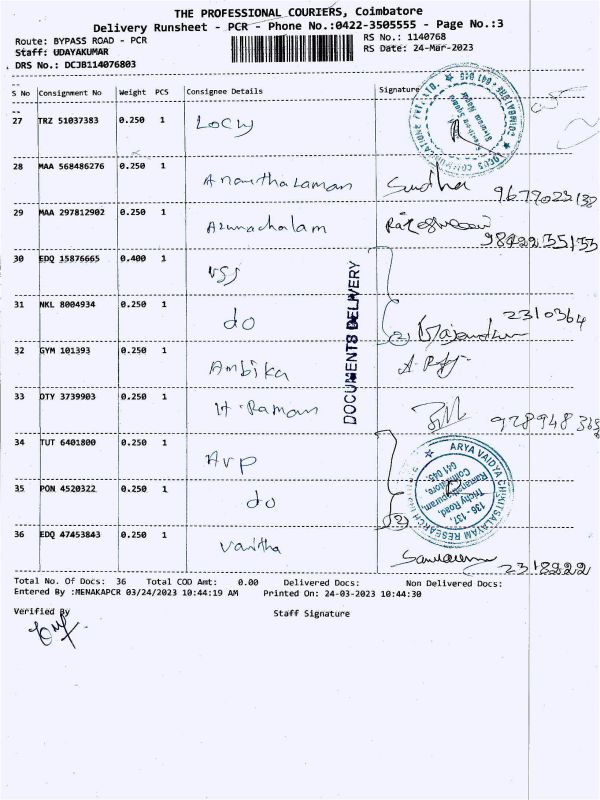 THE PROFESSIONAL COURIERS, Coimbatore
Delivery Runsheet - PCR - Phone No.:0422-3505555 - Page No.:3
Route: BYPASS ROAD - PCR
RS No.: 1140768
Staff: UDAYAKUMAR
RS Date: 24-Mar-2023
DRS No.: DCJB114076803
S No Consignment No Weight PCS Consignee Details Signature
27 TRZ 51037383 0.250 1
28 MAA 568486276 0.250 1 Anantharaman Sudha
29 MAA 297812902 0.250 1 Arunachalam
9842235133
30 EDQ 15876665 0.400 1 VSS
31 NKL 8004934 0.250 1 do 2310364
32 GYM 101393 0.250 1 Ambika
33 OTY 3739903 0.250 1 H. Raman
34 TUT 6401800 0.250 1 AVP
35 PON 4520322 0.250 1 do
36 EDQ 47453843 0.250 1 Vanitha
2318222
DOCUMENTS DELIVERY
ARYA VAIDYA CHIKITSALAYAM RESEARCH
136 - 137,
Trichy Road,
Ramanathapuram,
Coimbatore,
641 045
Total No. Of Docs: 36 Total COD Amt: 0.00 Delivered Docs: Non Delivered Docs:
Entered By :MENAKAPCR 03/24/2023 10:44:19 AM Printed On: 24-03-2023 10:44:30
Verified By
Staff Signature